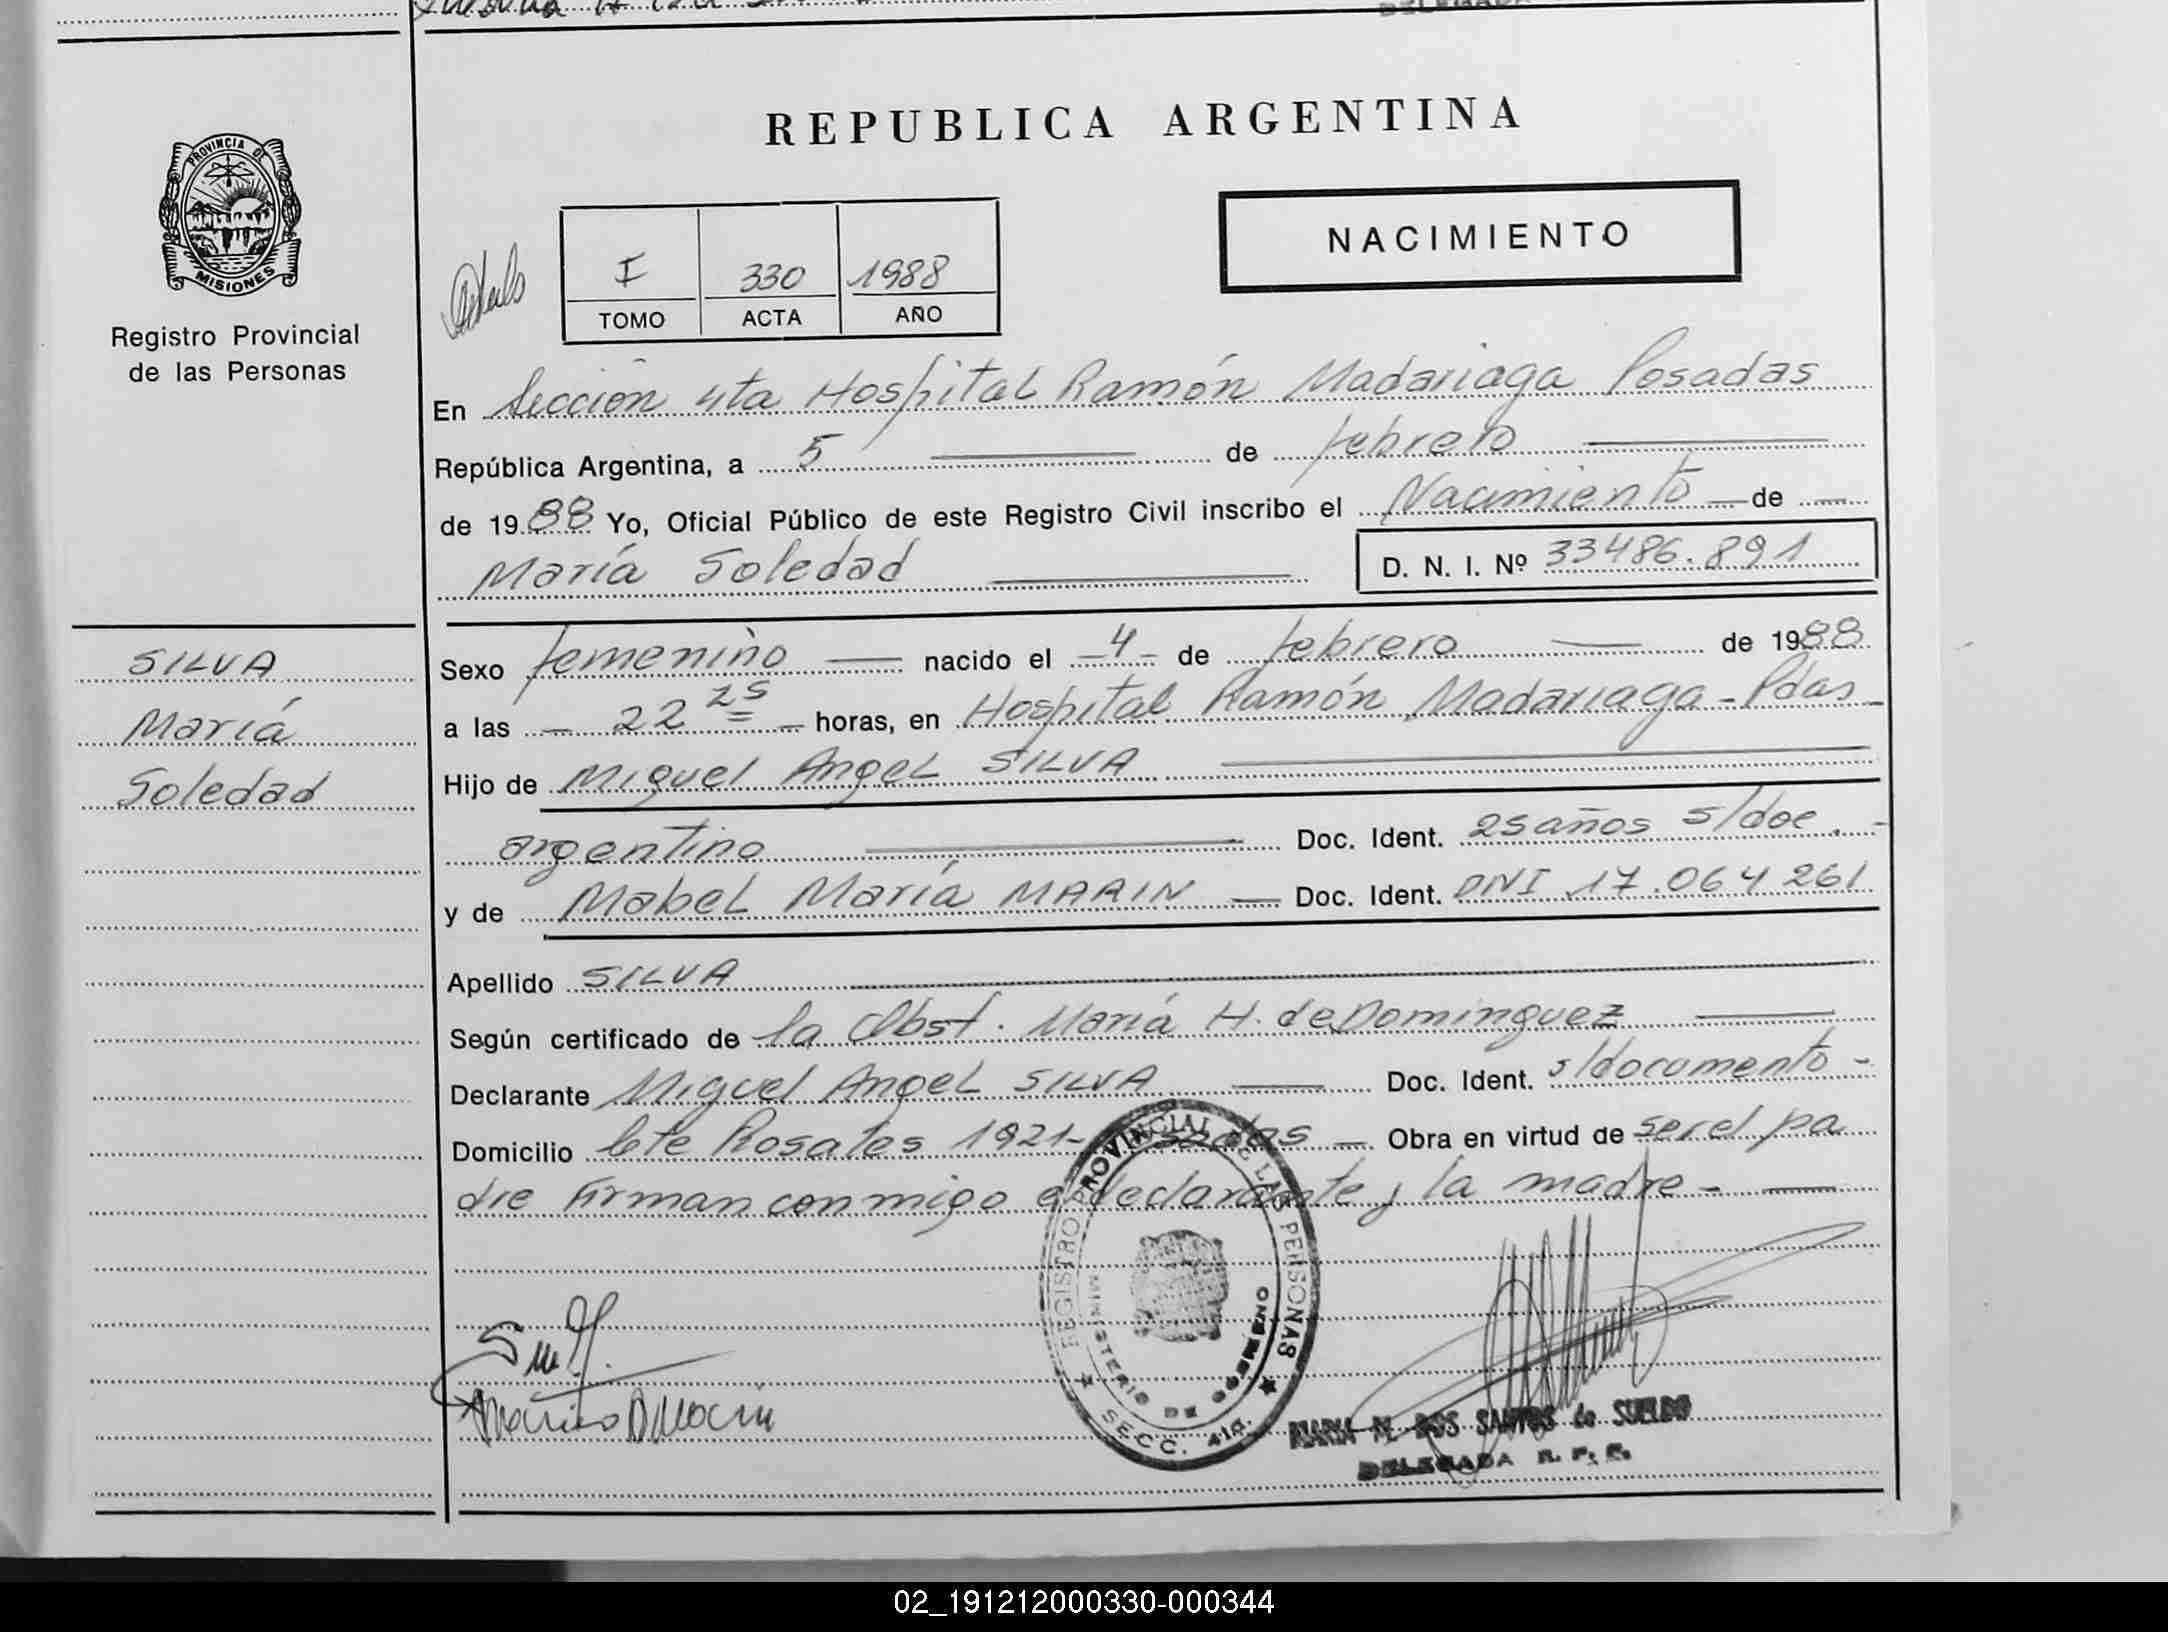 REPUBLICA ARGENTINA
PROVINCIA DE
MISIONES
Registro Provincial
de las Personas
NACIMIENTO
I 330 1988
TOMO ACTA AÑO
En Sección 4ta Hospital Ramón Madariaga Posadas
República Argentina, a 5 de febrero
de 1988 Yo, Oficial Público de este Registro Civil inscribo el Nacimiento de
María Soledad
D. N. I. Nº 33486.891
SILVA
María
Soledad
Sexo femenino nacido el 4 de febrero de 1988
a las 22 25 horas, en Hospital Ramón Madariaga - Pdas
Hijo de Miguel Angel SILVA
argentino Doc. Ident. 25 años s/doc.
y de Mabel María MARIN Doc. Ident. DNI 17.064261
Apellido SILVA
Según certificado de la Obst. María H. de Dominguez
Declarante Miguel Angel SILVA Doc. Ident. s/documento -
Domicilio Cte Rosales 1921- Posadas Obra en virtud de ser el pa
dre Firman conmigo el declarante y la madre -
REGISTRO PROVINCIAL DE LAS PERSONAS
MINISTERIO DE GOBIERNO
SECC. 4ta.
MARIA M. DOS SANTOS de SUELDO
DELEGADA R. P. P.
02_191212000330-000344